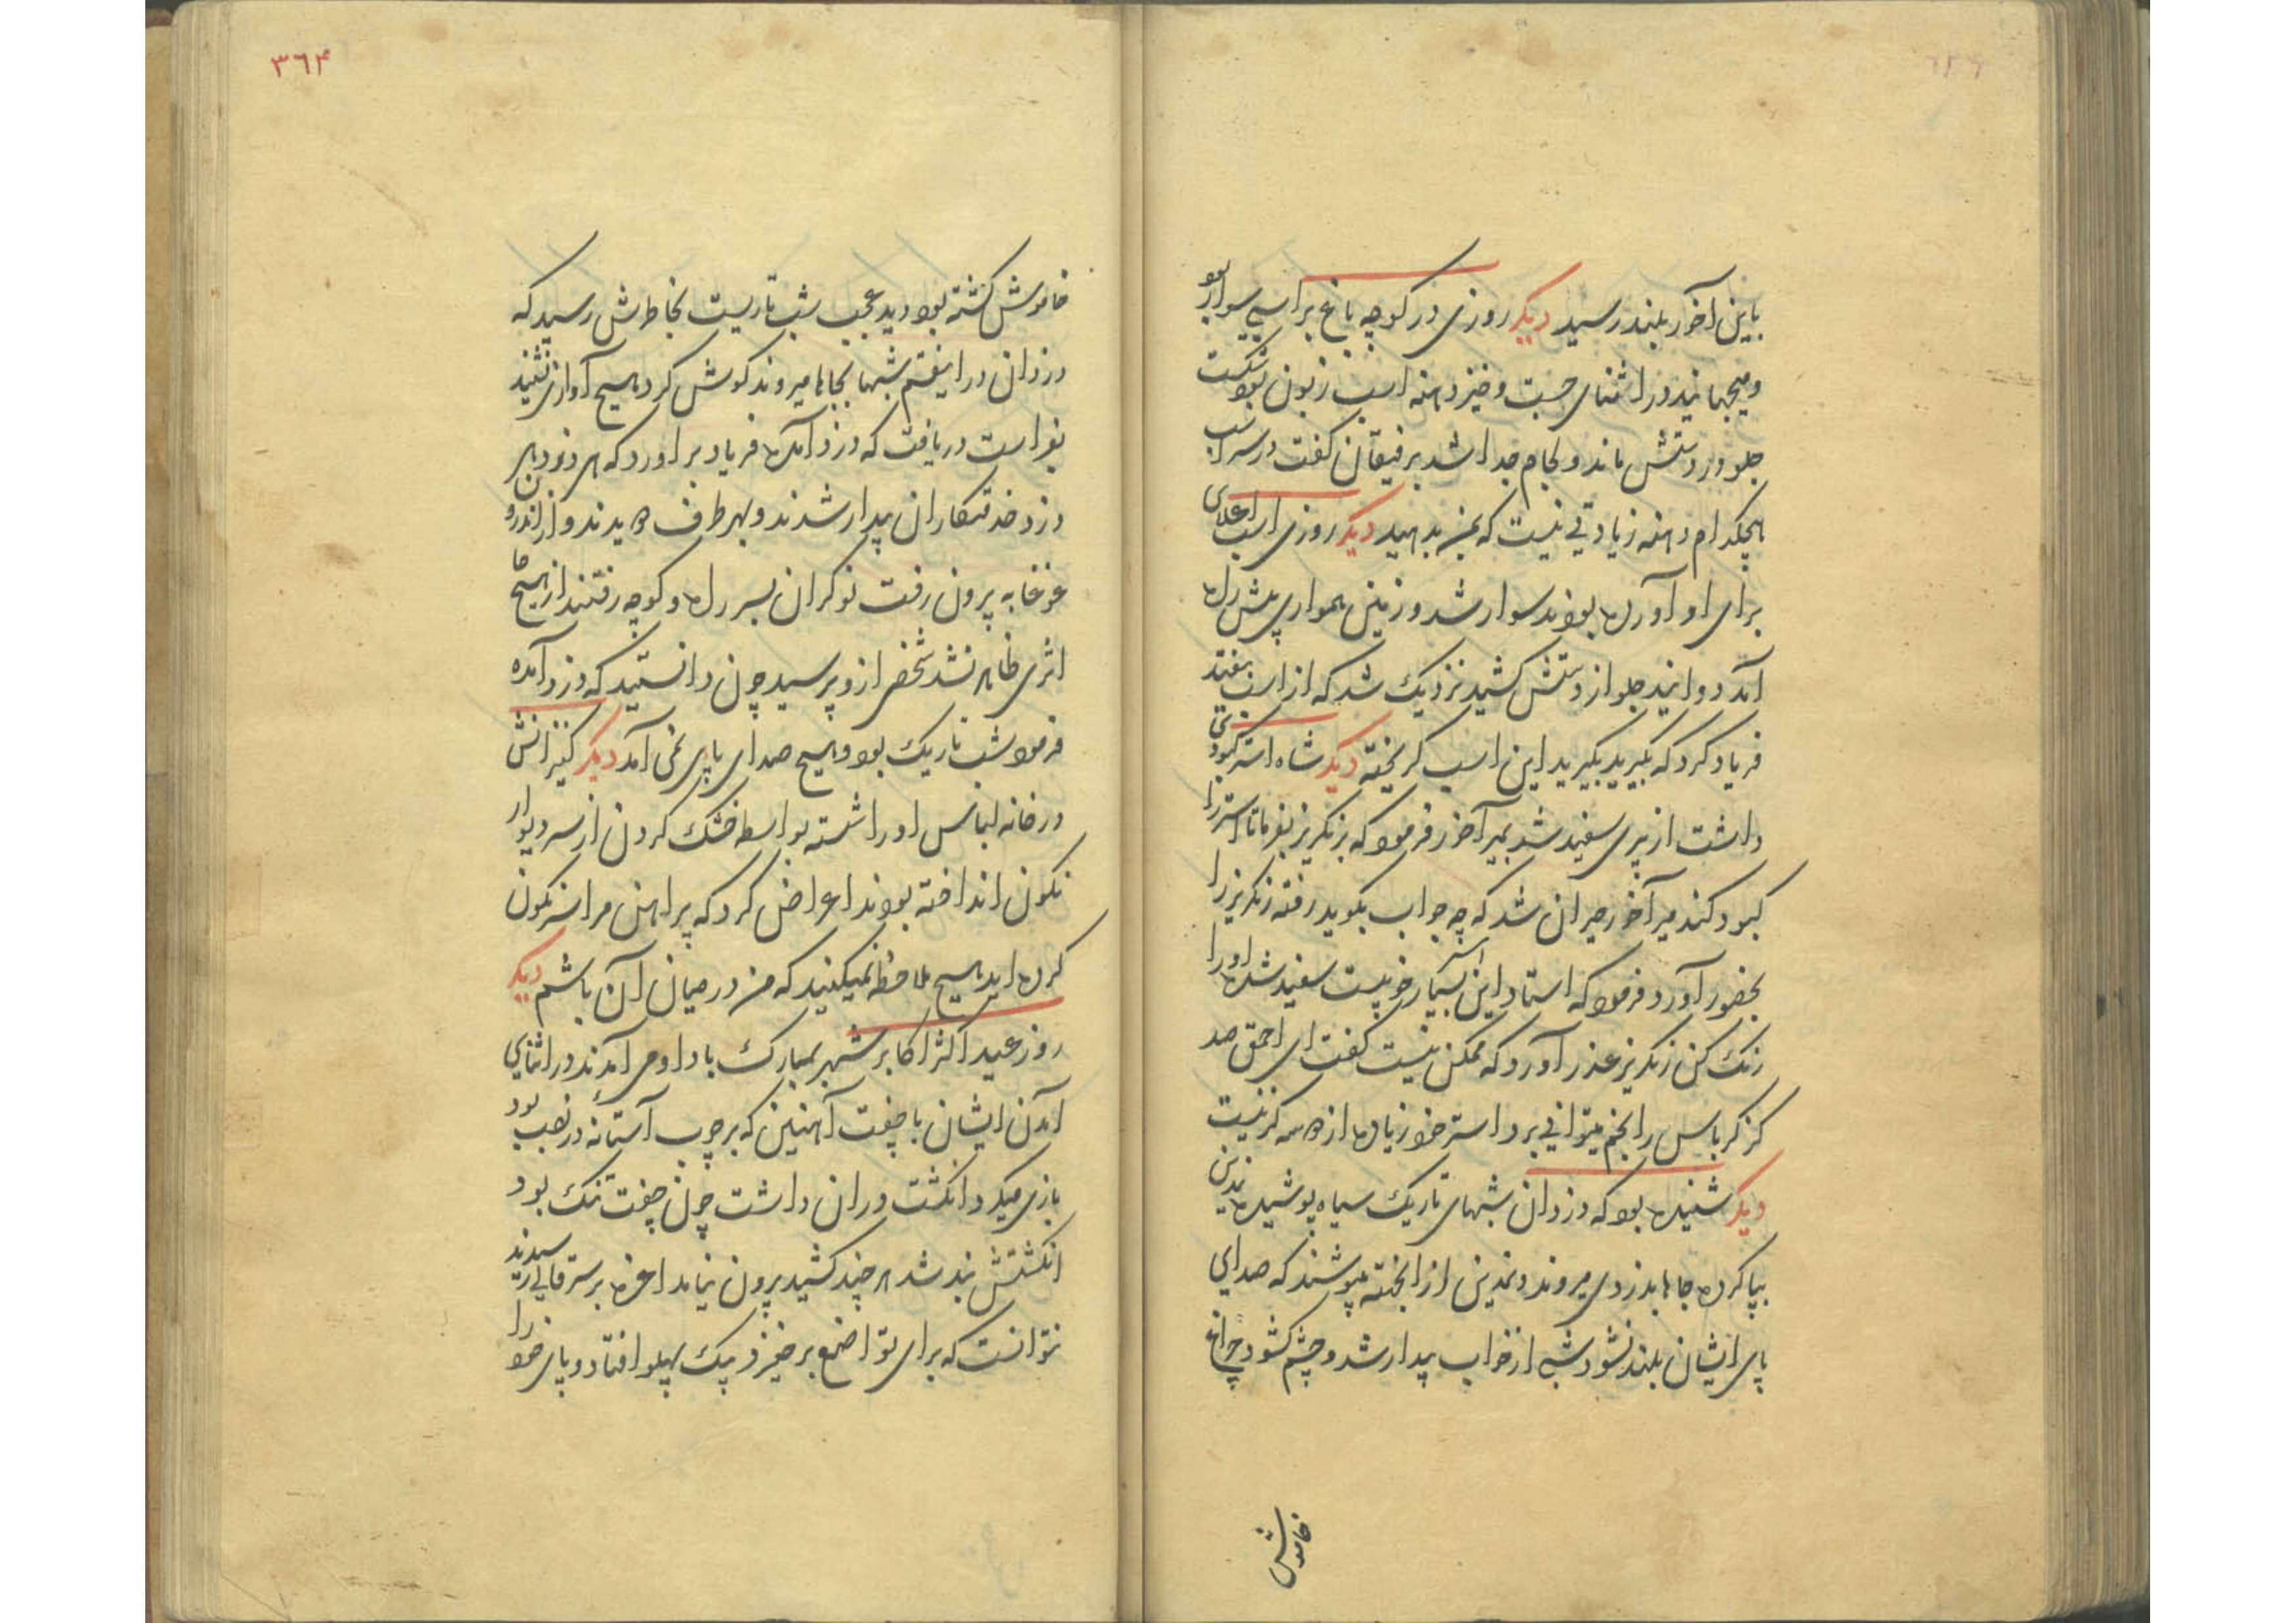 باین آخور بلند رسید دیکر روزی در کوچه باغ بر اسپی سوار بود
و میجهانید در اثنای جست و خیز دهنه اسپ زبون بود شکست
جلو در دستش ماند و لجام جدا شد برفیقان کفت در سر اسپ
هیچکدام دهنه زیادتی نیست که بمن بدهید دیکر روزی اسپ اعلای
برای او آورده بودند سوار شد و زمین همواری پیش راه
آمد دوانید جلو از دستش کشید نزدیک شد که از اسپ بیفتد
فریاد کرد که بکیرید بکیرید این اسپ کریخته دیکر شاه استر کبودی
داشت از پیری سفید شد بمیر آخور فرمود که برنکریز بفرما تا استر را
کبود کند میر آخور حیران شد که چه جواب بکوید رفته رنکریز را
بحضور آورد فرمود که استاد این استر بسیار خوبیست سفید شده او را
رنک کن رنکریز عذر آورد که ممکن نیست کفت ای احمق صد
کز کرباس را بخم میتوانی برد استر خود زیاده از ده کز نیست
دیکر شنیده بود که دزدان شبهای تاریک سیاه پوشیده نمدین
بپا کرده جاها بدزدی میروند و نمدین از آنجهته میپوشند که صدای
پای ایشان بلند نشود شبی از خواب بیدار شد و چشم کشود چراغ
خاموش
۳۶۴
خاموش کشته بود دید عجب شب تاریست بخاطرش رسید که
دزدان در اینقسم شبها بجاها میروند کوش کرد هیچ آوازی نشنید
بفراست دریافت که دزد آمده فریاد بر آورد که ای دزد ای
دزد خدمتکاران بیدار شدند و بهر طرف دویدند و از اندرون
غوغا به بیرون رفت نوکران بسر راه و کوچه رفتند از هیچ جا
اثری ظاهر نشد شخصی ازو پرسید چون دانستید که دزد آمده
فرمود شب تاریک بود و هیچ صدای پای نمی آمد دیکر کنیزانش
در خانه لباس او را شسته بواسطه خشک کردن از سر دیوار
نکون انداخته بودند اعراض کرد که پیراهن مرا سرنکون
کرده اید هیچ ملاحظه نمیکنید که من در میان آن باشم دیکر
روز عید اکثر اکابر شهر بمبارک باد او می آمدند در اثنای
آمدن ایشان با چفت آهنین که بر چوب آستانه در نصب بود
بازی میکرد انکشت در ان داشت چون چفت تنک بود
انکشتش بند شد هر چند کشید بیرون نیامد اعزه بر سر قالی رسیدند
نتوانست که برای تواضع برخیزد بیک پهلو افتاد و پای خود را